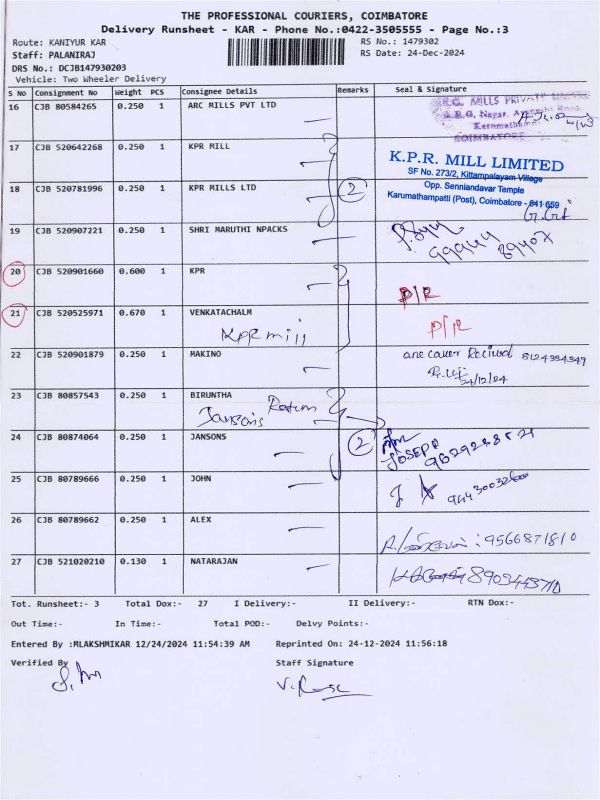 THE PROFESSIONAL COURIERS, COIMBATORE
Delivery Runsheet - KAR - Phone No.:0422-3505555 - Page No.:3
Route: KANIYUR KAR
RS No.: 1479302
Staff: PALANIRAJ
RS Date: 24-Dec-2024
DRS No.: DCJB147930203
Vehicle: Two Wheeler Delivery
S No Consignment No Weight PCS Consignee Details Remarks Seal & Signature
16 CJB 80584265 0.250 1 ARC MILLS PVT LTD
MILLS PRIVATE
Nagar,
COIMBATORE
17 CJB 520642268 0.250 1 KPR MILL
K.P.R. MILL LIMITED
SF No. 273/2, Kittampalayam Village
18 CJB 520781996 0.250 1 KPR MILLS LTD 2
Opp. Senniandavar Temple
Karumathampatti (Post), Coimbatore - 641 659
19 CJB 520907221 0.250 1 SHRI MARUTHI NPACKS
99944
89407
20 CJB 520901660 0.600 1 KPR
P/R
21 CJB 520525971 0.670 1 VENKATACHALM
KPR mill
P/R
22 CJB 520901879 0.250 1 MAKINO
one cover Recived
24/12/24
23 CJB 80857543 0.250 1 BIRUNTHA
Jansons Return
24 CJB 80874064 0.250 1 JANSONS 2
JOSEPH
25 CJB 80789666 0.250 1 JOHN
26 CJB 80789662 0.250 1 ALEX
9566871810
27 CJB 521020210 0.130 1 NATARAJAN
Tot. Runsheet:- 3 Total Dox:- 27 I Delivery:- II Delivery:- RTN Dox:-
Out Time:- In Time:- Total POD:- Delvy Points:-
Entered By :MLAKSHMIKAR 12/24/2024 11:54:39 AM Reprinted On: 24-12-2024 11:56:18
Verified By Staff Signature